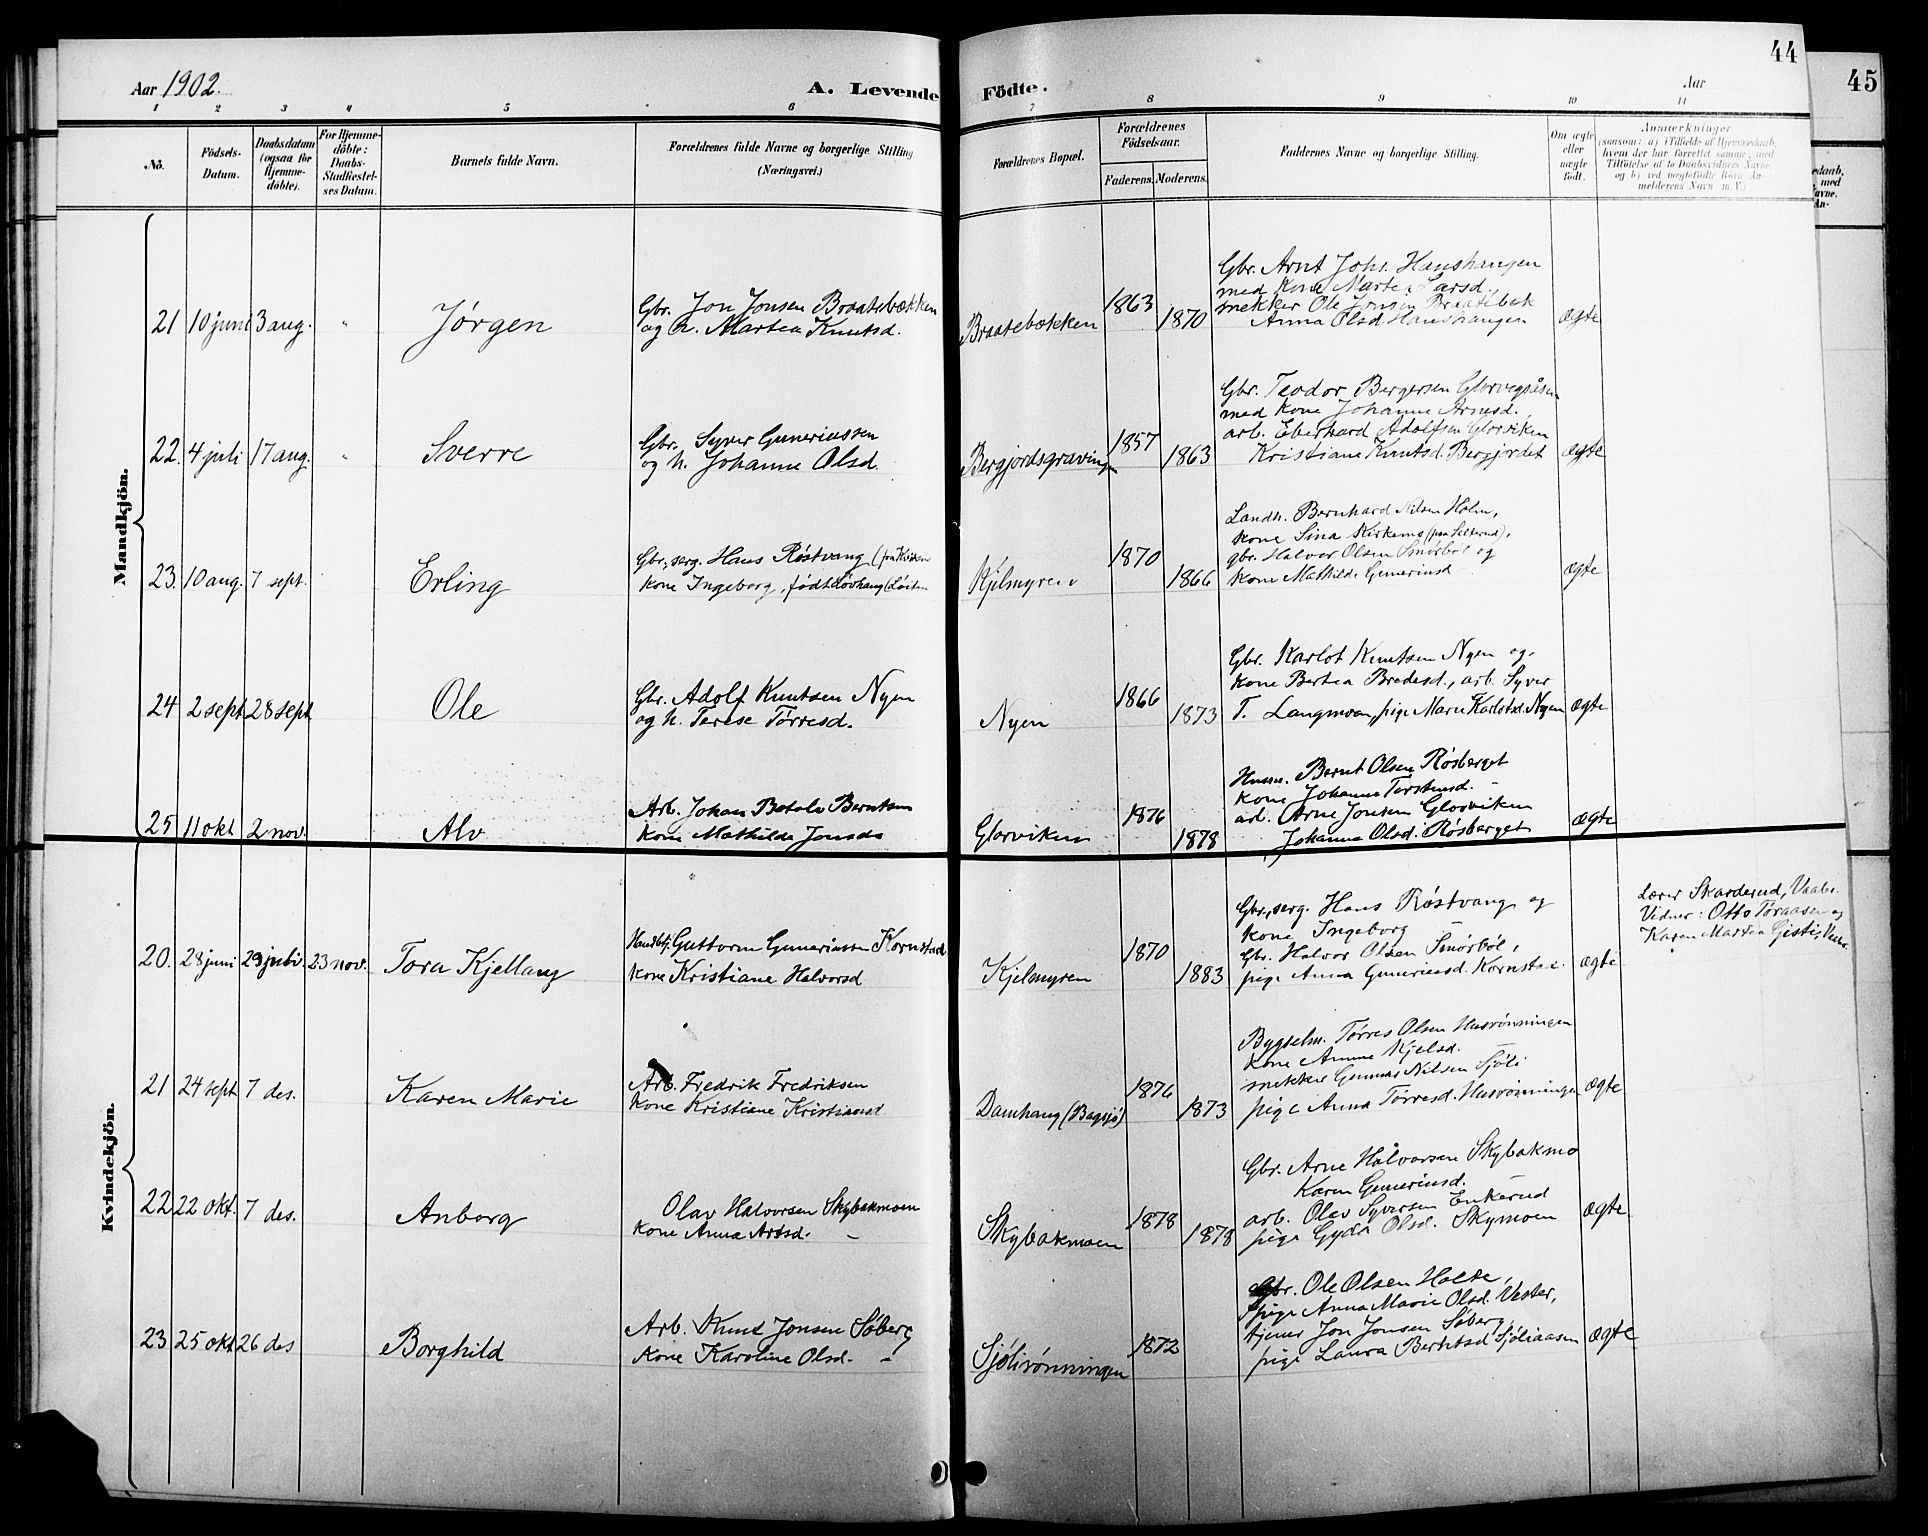 44
45
Aar 1902.
A. Levende Födte.
Aar
1 2 3 4 5 6 7 8 9 10 11
Nö.
Födsels-Datum.
Daabsdatum (ogsaa for Hjemmedöbte).
For Hjemmedöbte: Daabs-Stadfæstelses Datum.
Barnets fulde Navn.
Forældrenes fulde Navne og borgerlige Stilling (Næringsvei.)
Forældrenes Bopæl.
Forældrenes Födselsaar.
Faderens. Moderens.
Faddernes Navne og borgerlige Stilling.
Om ægte eller uægte födt.
Anmærkninger
(saasom: a) i Tilfælde af Hjemmedaab, hvem der har forrettet samme, med Tilföielse af to Daabsvidners Navne, og b) ved uægtefödte Börn Anmelderens Navn m. V.)
Mandkjön.
21 10 juni 3 aug. " Jørgen
Gbr. Jon Jonsen Braatebækken
og h. Martea Knutsd.
Braatebækken 1863 1870
Gbr. Arnt Johs. Haushaugen
med Kone Martea Larsd.,
snekker Ole Jonsen Braatebæk
Anna Olsd Haushaugen
ægte
22. 4 juli 17 aug. " Sverre
Gbr. Syver Guneriussen
og h. Johanne Olsd.
Bergjordsgravingen 1857 1863
Gbr. Teodor Bergersen Glorvigsåsen
med Kone Johanne Arnesd.,
arb. Eberhard Adolfsen Glorviken
Kristiane Knutsd. Bergjordet
ægte
23. 10 aug. 7 sept. Erling
Gbr., serg. Hans Røstvang (fra
kone Ingeborg, født Løvhaug (Løiten
Kjelmyren 1870 1866
Landh. Bernhard Nilsen Holm,
kone Sina Kirkemo (fra
gbr. Halvor Olsen Smörböl og
kone Mathilde Guneriusd
ægte
24 2 sept. 28 sept Ole
Gbr. Adolf Knutsen Nyen
og h. Terese Tørresd.
Nyen 1866 1873
Gbr. Karlot Knutsen Nyen og
kone Bertea Bredesd., arb. Syver
T. Langmoen, pige Marie Karlotsd. Nyen
ægte
25 11 okt 2 nov. Alv
Arb. Johan Betolv Berntsen
kone Mathilde Jonsda
Glorviken 1876 1878
Husm. Bernt Olsen Røsberget
kone Johanne Torstensd. –
arb. Arne Jonsen Glorviken
Johanne Olsd. Røsberget
ægte
Kvindekjön.
20. 28 juni 29 juli. 23 nov. Tora Kjellaug
Handelsbetj. Guttorm Guneriussen Kornstad
kone Kristiane Halvorsd
Kjelmyren 1870 1883
Gbr., serg. Hans Røstvang og
kone Ingeborg –
Gbr. Halvor Olsen Smörböl,
pige Anna Guneriusd. Kornstad.
ægte
Lærer Skarderud, Vaaler.
Vidner: Otto Toraasen og
Karen Martea
21 24 sept 7 des. Karen Marie
Arb. Fredrik Fredriksen
kone Kristiane Kristiansd
Damhaug (Bagsjø) 1876 1873
Bygselm. Tørres Olsen Husrønningen
kone Anne Kjelsd.
snekker Gunnar Nilsen Sjöli
pige Anna Torresd. Husrønningen
ægte
22 22 okt. 7 des. Anborg
Olav Halvorsen Skybakmoen
kone Anna Arnesd. –
Skybakmoen 1878 1878
Gbr. Arne Halvorsen Skybakmo
Karen Guneriusd.
arb. Olav Syversen Enkerud
pige Gyda Olsd. Skymoen
ægte
23 25 okt 26 des Borghild
Arb. Knut Jonsen Søberg
Kone Karoline Olsd. –
Sjölirønningen 1872
Gbr. Ole Olsen Holte,
pige Anna Marie Olsd. Vester,
tjener Jon Jonsen Søberg,
pige Laura Berntsd Sjöliaasen
ægte